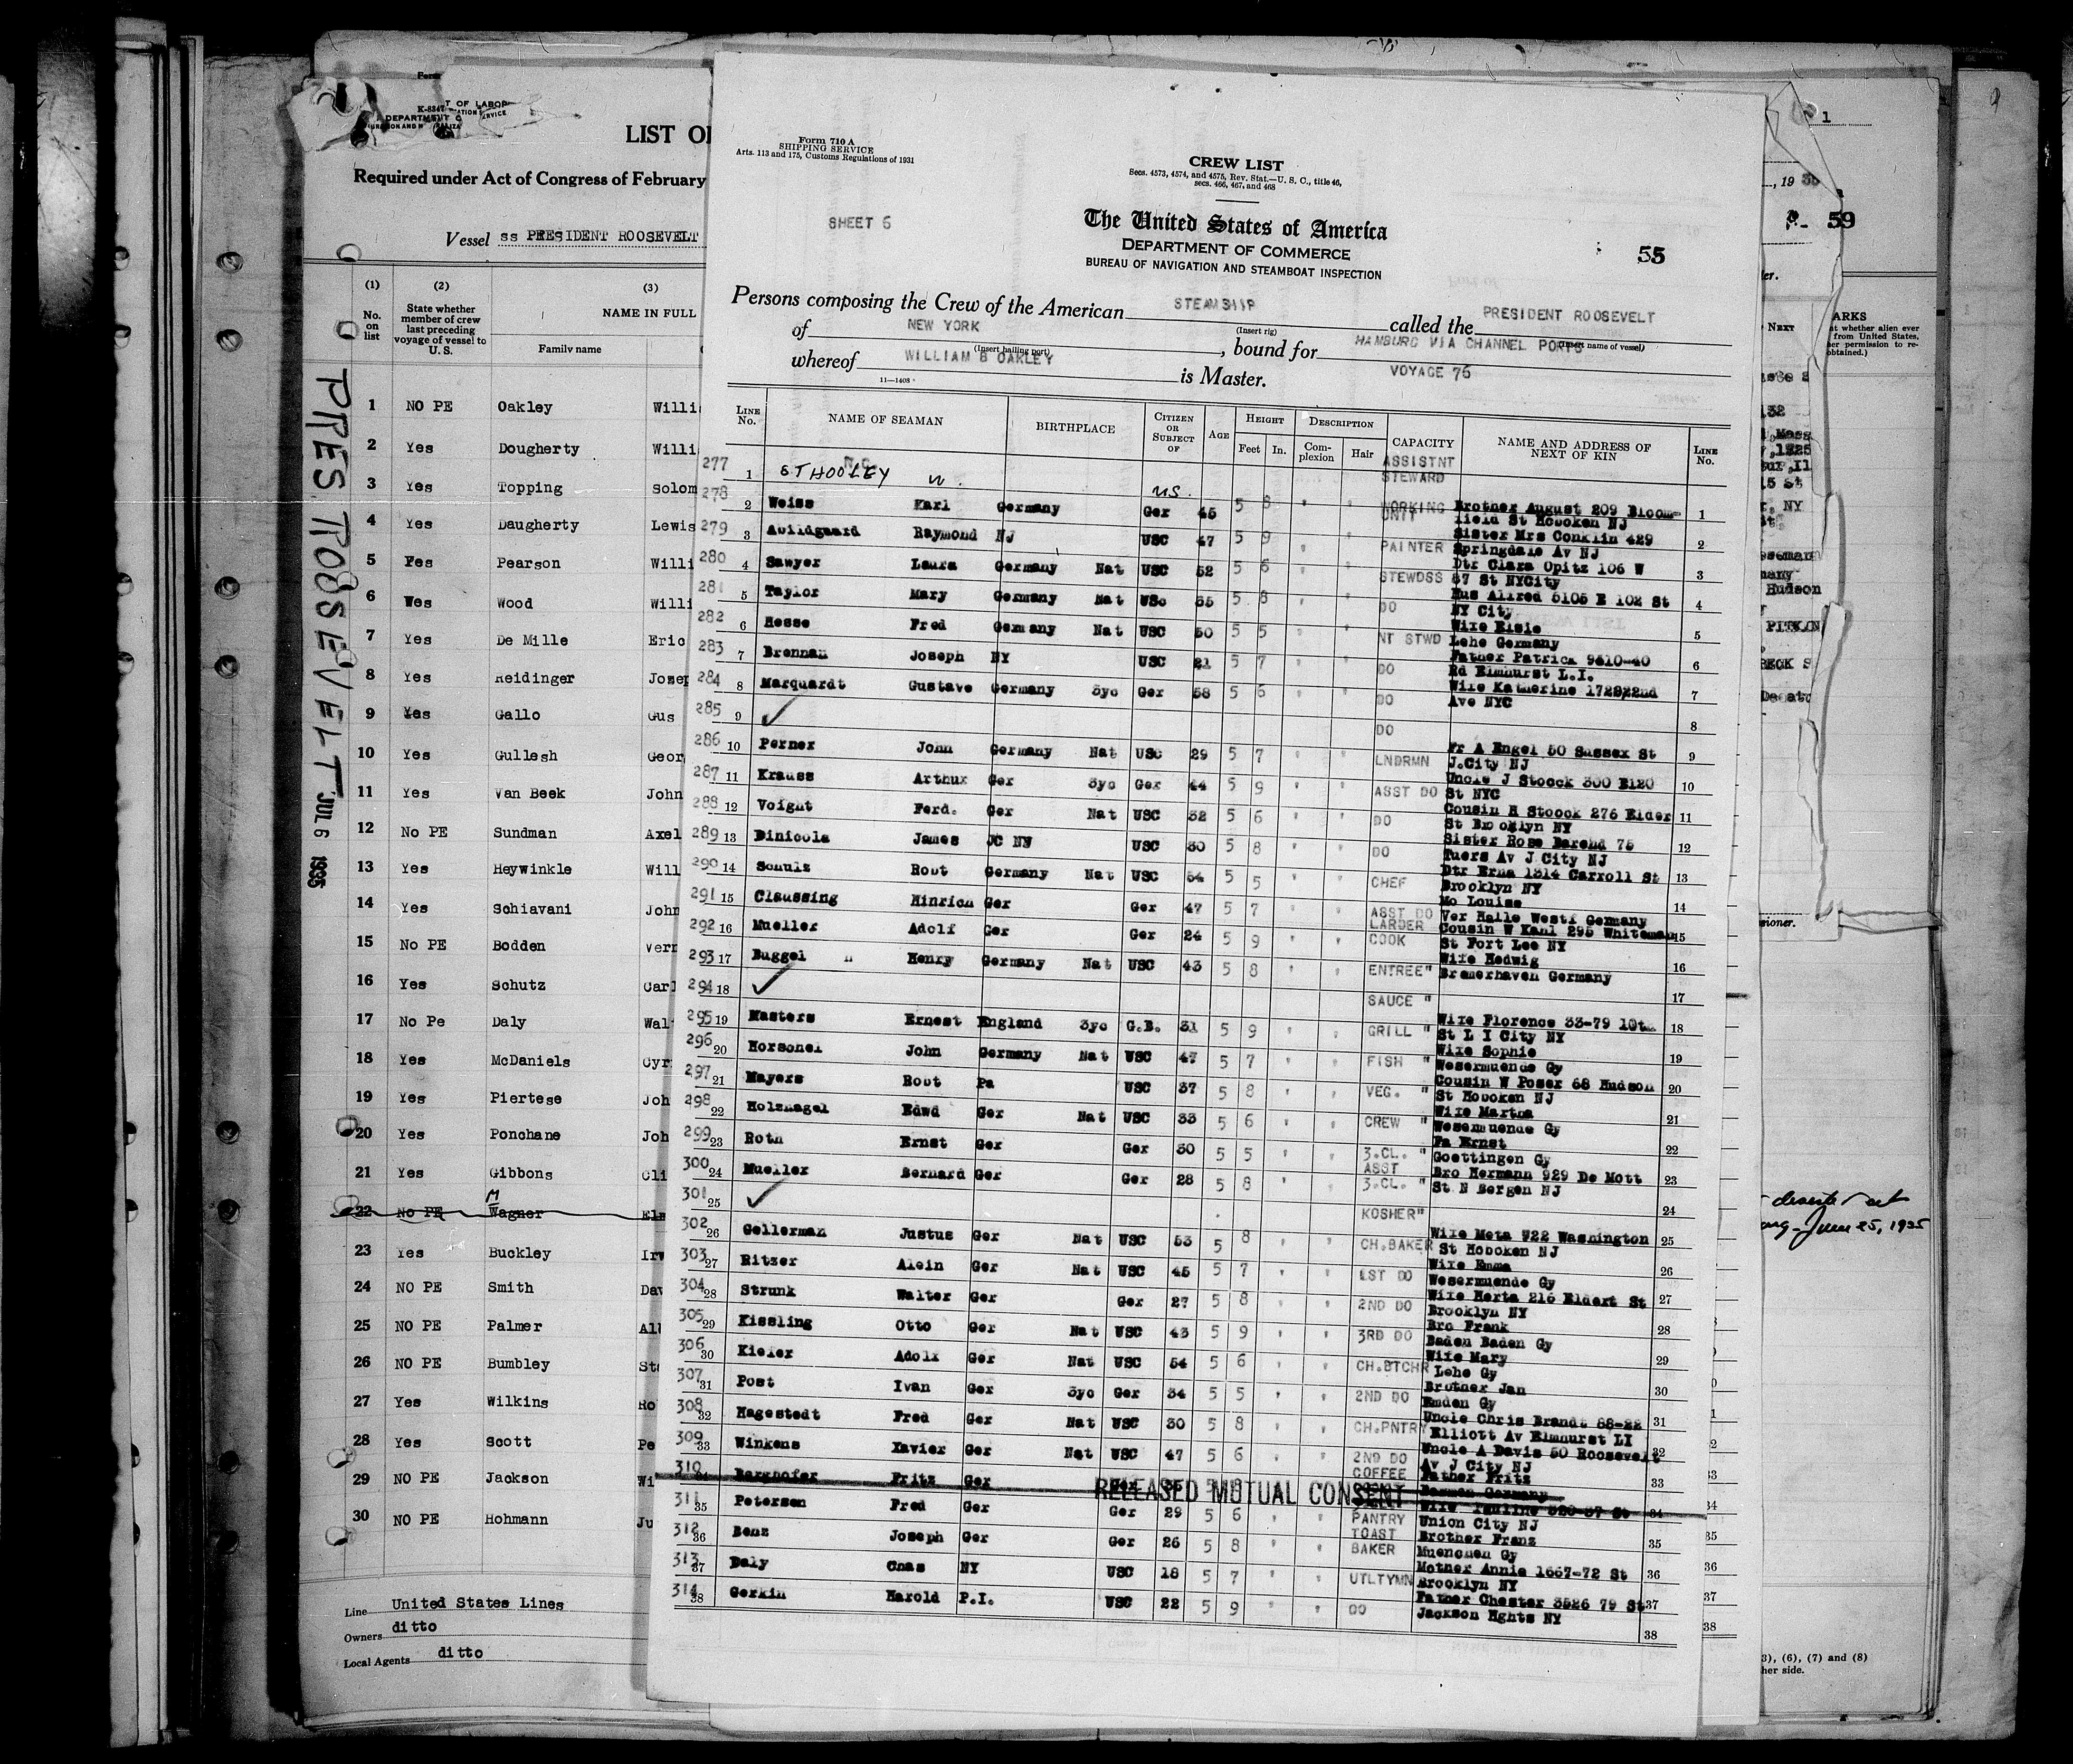 K-8347
DEPARTMENT OF LABOR
LIST OF
Required under Act of Congress of February
Vessel ss PRESIDENT ROOSEVELT
(1) (2) (3)
No. on list
State whether member of crew last preceding voyage of vessel to U. S.
NAME IN FULL
Family name
PRES ROOSEVELT JUL 6 1935
1 NO PE Oakley Willi
2 Yes Dougherty Willi
3 Yes Topping Solom
4 Yes Daugherty Lewis
5 Yes Pearson Willi
6 Yes Wood Willi
7 Yes De Mille Eric
8 Yes Reidinger Josep
9 Yes Gallo Gus
10 Yes Gullesh Geor
11 Yes Van Beek John
12 No PE Sundman Axel
13 Yes Heywinkle Will
14 Yes Schiavani John
15 No PE Bodden Vern
16 Yes Schutz Carl
17 No Pe Daly Wal
18 Yes McDaniels Cyr
19 Yes Piertese Joh
20 Yes Ponchane Joh
21 Yes Gibbons Cli
22 No PE Wagner
23 Yes Buckley Irw
24 NO PE Smith Dav
25 NO PE Palmer Alb
26 NO PE Bumbley Ste
27 Yes Wilkins Ro
28 Yes Scott Pe
29 NO PE Jackson Wi
30 NO PE Hohmann Ju
Line United States Lines
Owners ditto
Local Agents ditto
Form 710 A
SHIPPING SERVICE
Arts. 113 and 175, Customs Regulations of 1931
CREW LIST
Secs. 4573, 4574, and 4575, Rev. Stat.—U. S. C., title 46,
secs. 466, 467, and 468
SHEET 6
The United States of America
DEPARTMENT OF COMMERCE
BUREAU OF NAVIGATION AND STEAMBOAT INSPECTION
55
Persons composing the Crew of the American STEAMSHIP called the PRESIDENT ROOSEVELT
(Insert rig) (Insert name of vessel)
of NEW YORK, bound for HAMBURG VIA CHANNEL PORTS
(Insert hailing port)
whereof WILLIAM B OAKLEY is Master. VOYAGE 76
11—1408
LINE No. NAME OF SEAMAN BIRTHPLACE CITIZEN OR SUBJECT OF AGE HEIGHT Feet In. DESCRIPTION Complexion Hair CAPACITY NAME AND ADDRESS OF NEXT OF KIN LINE No.
277 1 STHOOLEY W. US. ASSISTNT STEWARD
278 2 Weiss Karl Germany Ger 45 5 8 WORKING UNIT Brother August 209 Bloomfield St Hoboken NJ 1
279 3 Abildgaard Raymond NJ USC 47 5 9 PAINTER Sister Mrs Conklin 429 Springdale Av NJ 2
280 4 Sawyer Laura Germany Nat USC 52 5 6 STEWDSS Dtr Clara Opitz 106 W 87 St NYCity 3
281 5 Taylor Mary Germany Nat USC 35 5 8 DO Hus Alfred 5105 E 102 St NY City 4
282 6 Hesse Fred Germany Nat USC 50 5 5 NT STWD Wife Elsie Lehe Germany 5
283 7 Brennan Joseph NY USC 21 5 7 DO Father Patrick 9510-40 Rd Elmhurst L.I. 6
284 8 Marquardt Gustave Germany 3yc Ger 58 5 6 DO Wife Katherine 1729 22nd Ave NYC 7
285 9 ✓ DO 8
286 10 Perner John Germany Nat USC 29 5 7 LNDRMN Fr A Engel 50 Sussex St J.City NJ 9
287 11 Krauss Arthur Ger 3yc Ger 44 5 9 ASST DO Uncle J Stoock 300 E120 St NYC 10
288 12 Voight Ferd. Ger Nat USC 32 5 6 DO Cousin H Stoock 276 Elder St Brooklyn NY 11
289 13 Dinicola James JC NY USC 30 5 8 DO Sister Rose Berend 75 Tuers Av J City NJ 12
290 14 Schulz Robt Germany Nat USC 54 5 5 CHEF Dtr Erna 1314 Carroll St Brooklyn NY 13
291 15 Claussing Hinrich Ger Ger 47 5 7 ASST DO Mo Louise Ver Halle Westf Germany 14
292 16 Mueller Adolf Ger Ger 24 5 9 LARDER COOK Cousin W Kahl 295 Whiteman St Fort Lee NY 15
293 17 Buggel Henry Germany Nat USC 43 5 8 ENTREE " Wife Hedwig Bremerhaven Germany 16
294 18 ✓ SAUCE " 17
295 19 Masters Ernest England 3yc G.B. 31 5 9 GRILL " Wife Florence 33-79 10th St L I City NY 18
296 20 Horschel John Germany Nat USC 47 5 7 FISH " Wife Sophie Wesermuende Gy 19
297 21 Mayers Robt Pa USC 37 5 8 VEG. " Cousin W Poser 68 Hudson St Hoboken NJ 20
298 22 Holznagel Edwd Ger Nat USC 33 5 6 CREW " Wife Martha Wesermuende Gy 21
299 23 Roth Ernst Ger Ger 30 5 5 3.CL. " Fa Ernst Goettingen Gy 22
300 24 Mueller Bernard Ger Ger 28 5 8 ASST 3.CL. " Bro Hermann 929 De Mott St N Bergen NJ 23
301 25 ✓ KOSHER " 24
302 26 Gellerman Justus Ger Nat USC 53 5 8 CH.BAKER Wife Meta 922 Washington St Hoboken NJ 25
303 27 Ritzer Alein Ger Nat USC 45 5 7 1ST DO Wife Emma Wesermuende Gy 26
304 28 Strunk Walter Ger Ger 27 5 8 2ND DO Wife Herta 216 Eldert St Brooklyn NY 27
305 29 Kissling Otto Ger Nat USC 43 5 9 3RD DO Bro Frank Baden Baden Gy 28
306 30 Kiefer Adolf Ger Nat USC 54 5 6 CH.BTCHR Wife Mary Lehe Gy 29
307 31 Post Ivan Ger 3yc Ger 34 5 5 2ND DO Brother Jan Emden Gy 30
308 32 Hagestedt Fred Ger Nat USC 30 5 8 CH.PNTRY Uncle Chris Brandt 88-22 Elliott Av Elmhurst LI 31
309 33 Winkens Xavier Ger Nat USC 47 5 6 2ND DO Uncle A Davis 50 Roosevelt Av J City NJ 32
310 Berghofer Fritz Ger COFFEE Father Fritz Barmen Germany 33
RELEASED MUTUAL CONSENT
311 35 Petersen Fred Ger Ger 29 5 6 PANTRY Wife Pauline 520-37 St Union City NJ 34
312 36 Benz Joseph Ger Ger 26 5 8 TOAST BAKER Brother Franz Muenchen Gy 35
313 37 Daly Chas NY USC 18 5 7 UTLTYMN Mother Annie 1667-72 St Brooklyn NY 36
314 38 Gerkin Harold P.I. USC 22 5 9 DO Father Chester 3526 79 St Jackson Hghts NY 37
38
1
, 19 35
59
NEXT
ARKS
t whether alien ever
from United States,
er permission to re-
obtained.)
Mass
Hudson
sioner.
June 25, 1935
3), (6), (7) and (8)
her side.